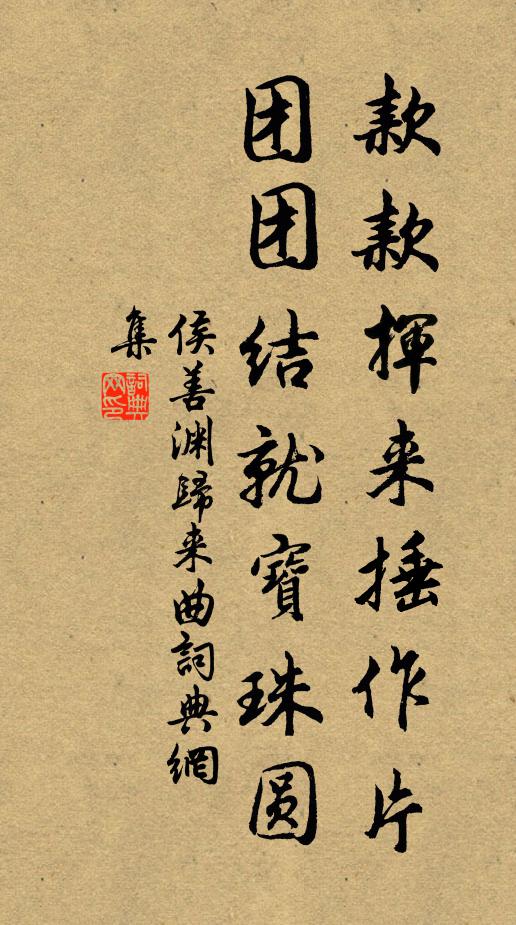 款款揮来捶作片
团团结就寳珠圆
侯善渊歸来曲詞典網
集
詞典網印